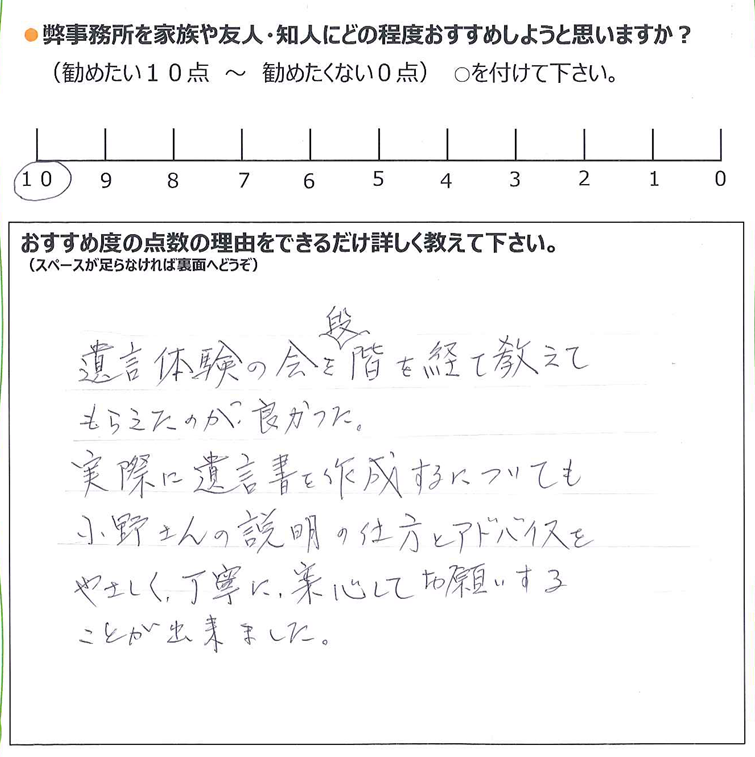 ●弊事務所を家族や友人・知人にどの程度おすすめしようと思いますか？
（勧めたい１０点　～　勧めたくない０点）　○を付けて下さい。
10 9 8 7 6 5 4 3 2 1 0
おすすめ度の点数の理由をできるだけ詳しく教えて下さい。
（スペースが足らなければ裏面へどうぞ）
遺言体験の会を段階を経て教えて
もらえたのが、良かった。
実際に遺言書を作成するについても
小野さんの説明の仕方とアドバイスを
やさしく、丁寧に、安心してお願いする
ことが出来ました。